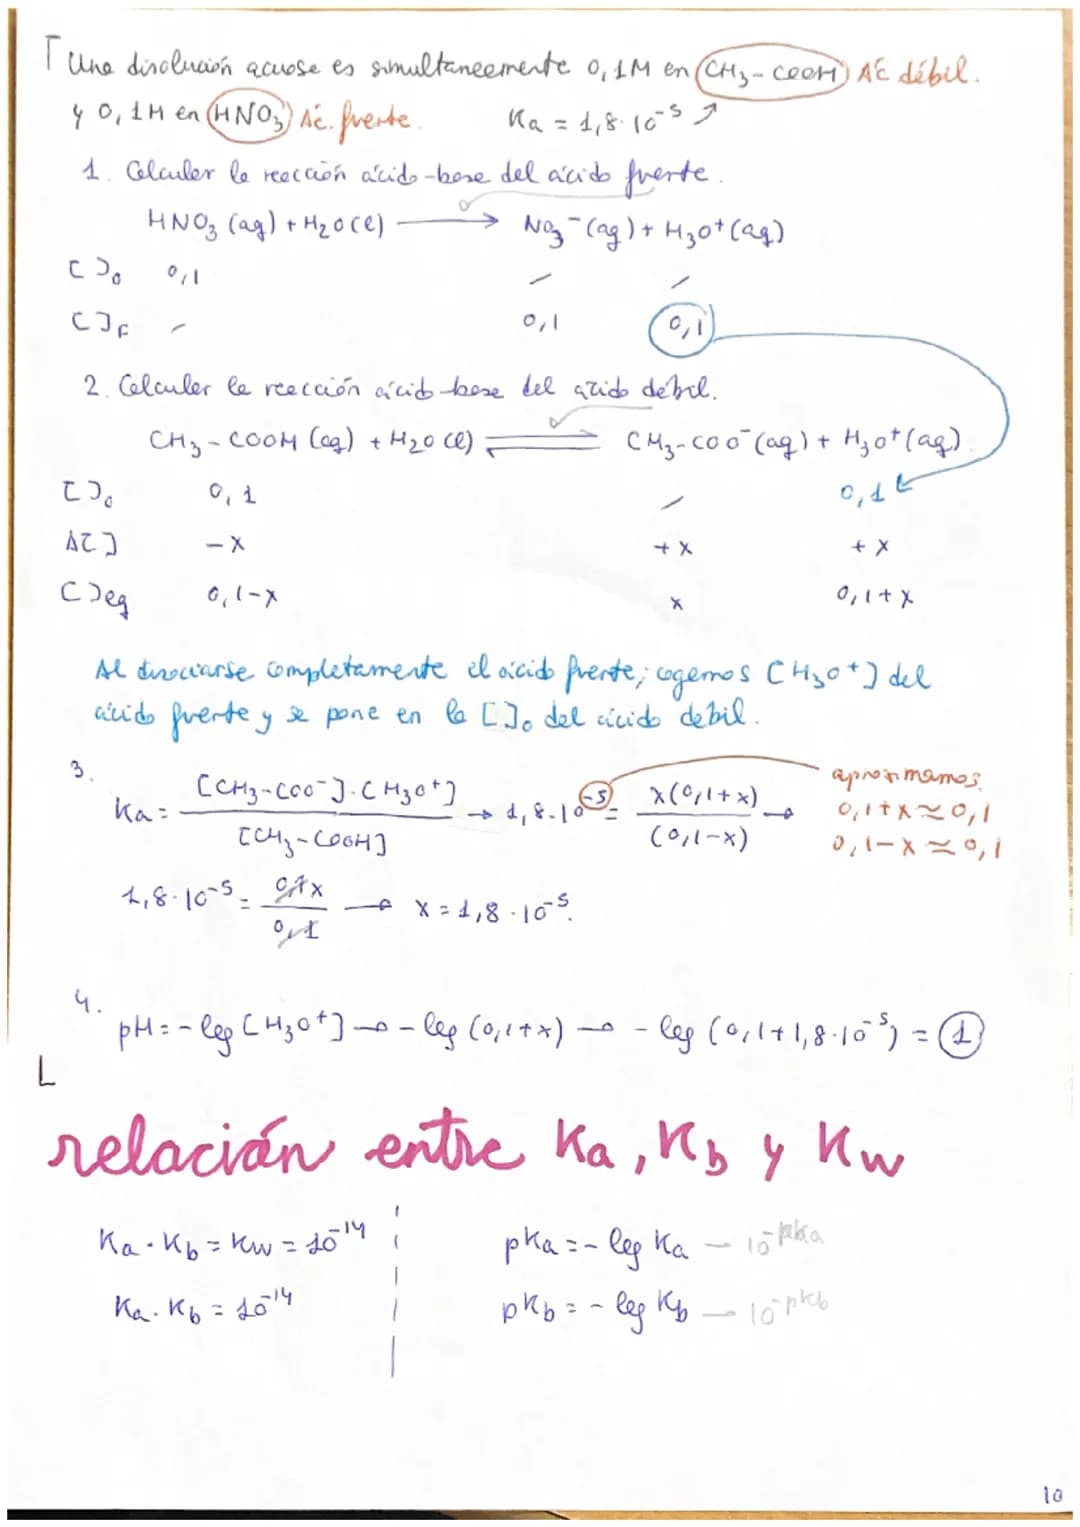 Una disolución acuosa es simultaneamente 0,1M en CH₃-COOH Ác débil.
y 0,1M en HNO₃ Ác. fuerte. Ka = 1,8·10⁻⁵
1. Calcular la reacción ácido-base del ácido fuerte.
HNO₃ (aq) + H₂O(l) → NO₃⁻ (aq) + H₃O⁺(aq)
[ ]₀ 0,1 / /
[ ]F / 0,1 0,1
2. Calcular la reacción ácido-base del ácido débil.
CH₃-COOH (aq) + H₂O (l) ⇌ CH₃-COO⁻(aq) + H₃O⁺(aq)
[ ]₀ 0,1 / 0,1
Δ[ ] -x +x +x
[ ]eq 0,1-x x 0,1+x
Al disociarse completamente el ácido fuerte; cogemos [H₃O⁺] del
ácido fuerte y se pone en la [ ]₀ del ácido debil.
3.
Ka = [CH₃-COO⁻]·[H₃O⁺] / [CH₃-COOH] → 1,8·10⁻⁵ = x(0,1+x) / (0,1-x) → aproximamos.
0,1+x ≈ 0,1
0,1-x ≈ 0,1
1,8·10⁻⁵ = 0,1x / 0,1 → x = 1,8·10⁻⁵.
4.
pH = -log [H₃O⁺] → -log (0,1+x) → -log (0,1+1,8·10⁻⁵) = 1
relación entre Ka, Kb y Kw
Ka·Kb = Kw = 10⁻¹⁴
Ka·Kb = 10⁻¹⁴
pKa = -log Ka — 10⁻ᵖᴷᵃ
pKb = -log Kb — 10⁻ᵖᴷᵇ
10